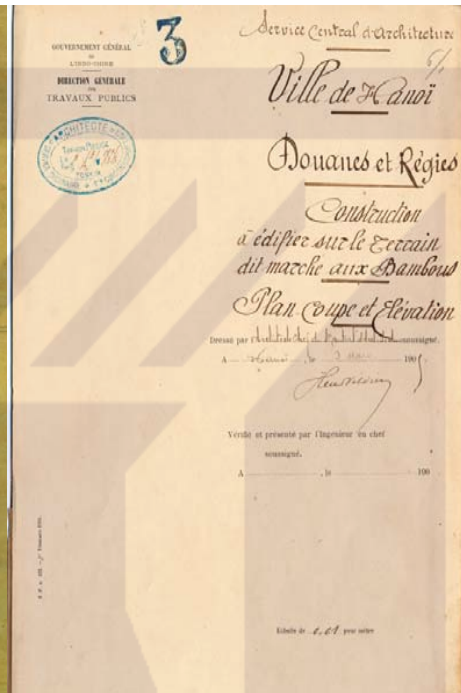 GOUVERNEMENT GÉNÉRAL
DE
L'INDO-CHINE
DIRECTION GÉNÉRALE
DES
TRAVAUX PUBLICS
3
Service Central d'Architecture
Ville de Hanoï
Douanes et Régies
Construction
à édifier sur le Terrain
dit marché aux Bambous
Plan Coupe et Élévation
Dressé par l'Architecte soussigné.
A Hanoï, le 190
Vérifié et présenté par l'Ingénieur en chef
soussigné.
A , le 190
Echelle de 0,01 pour mètre